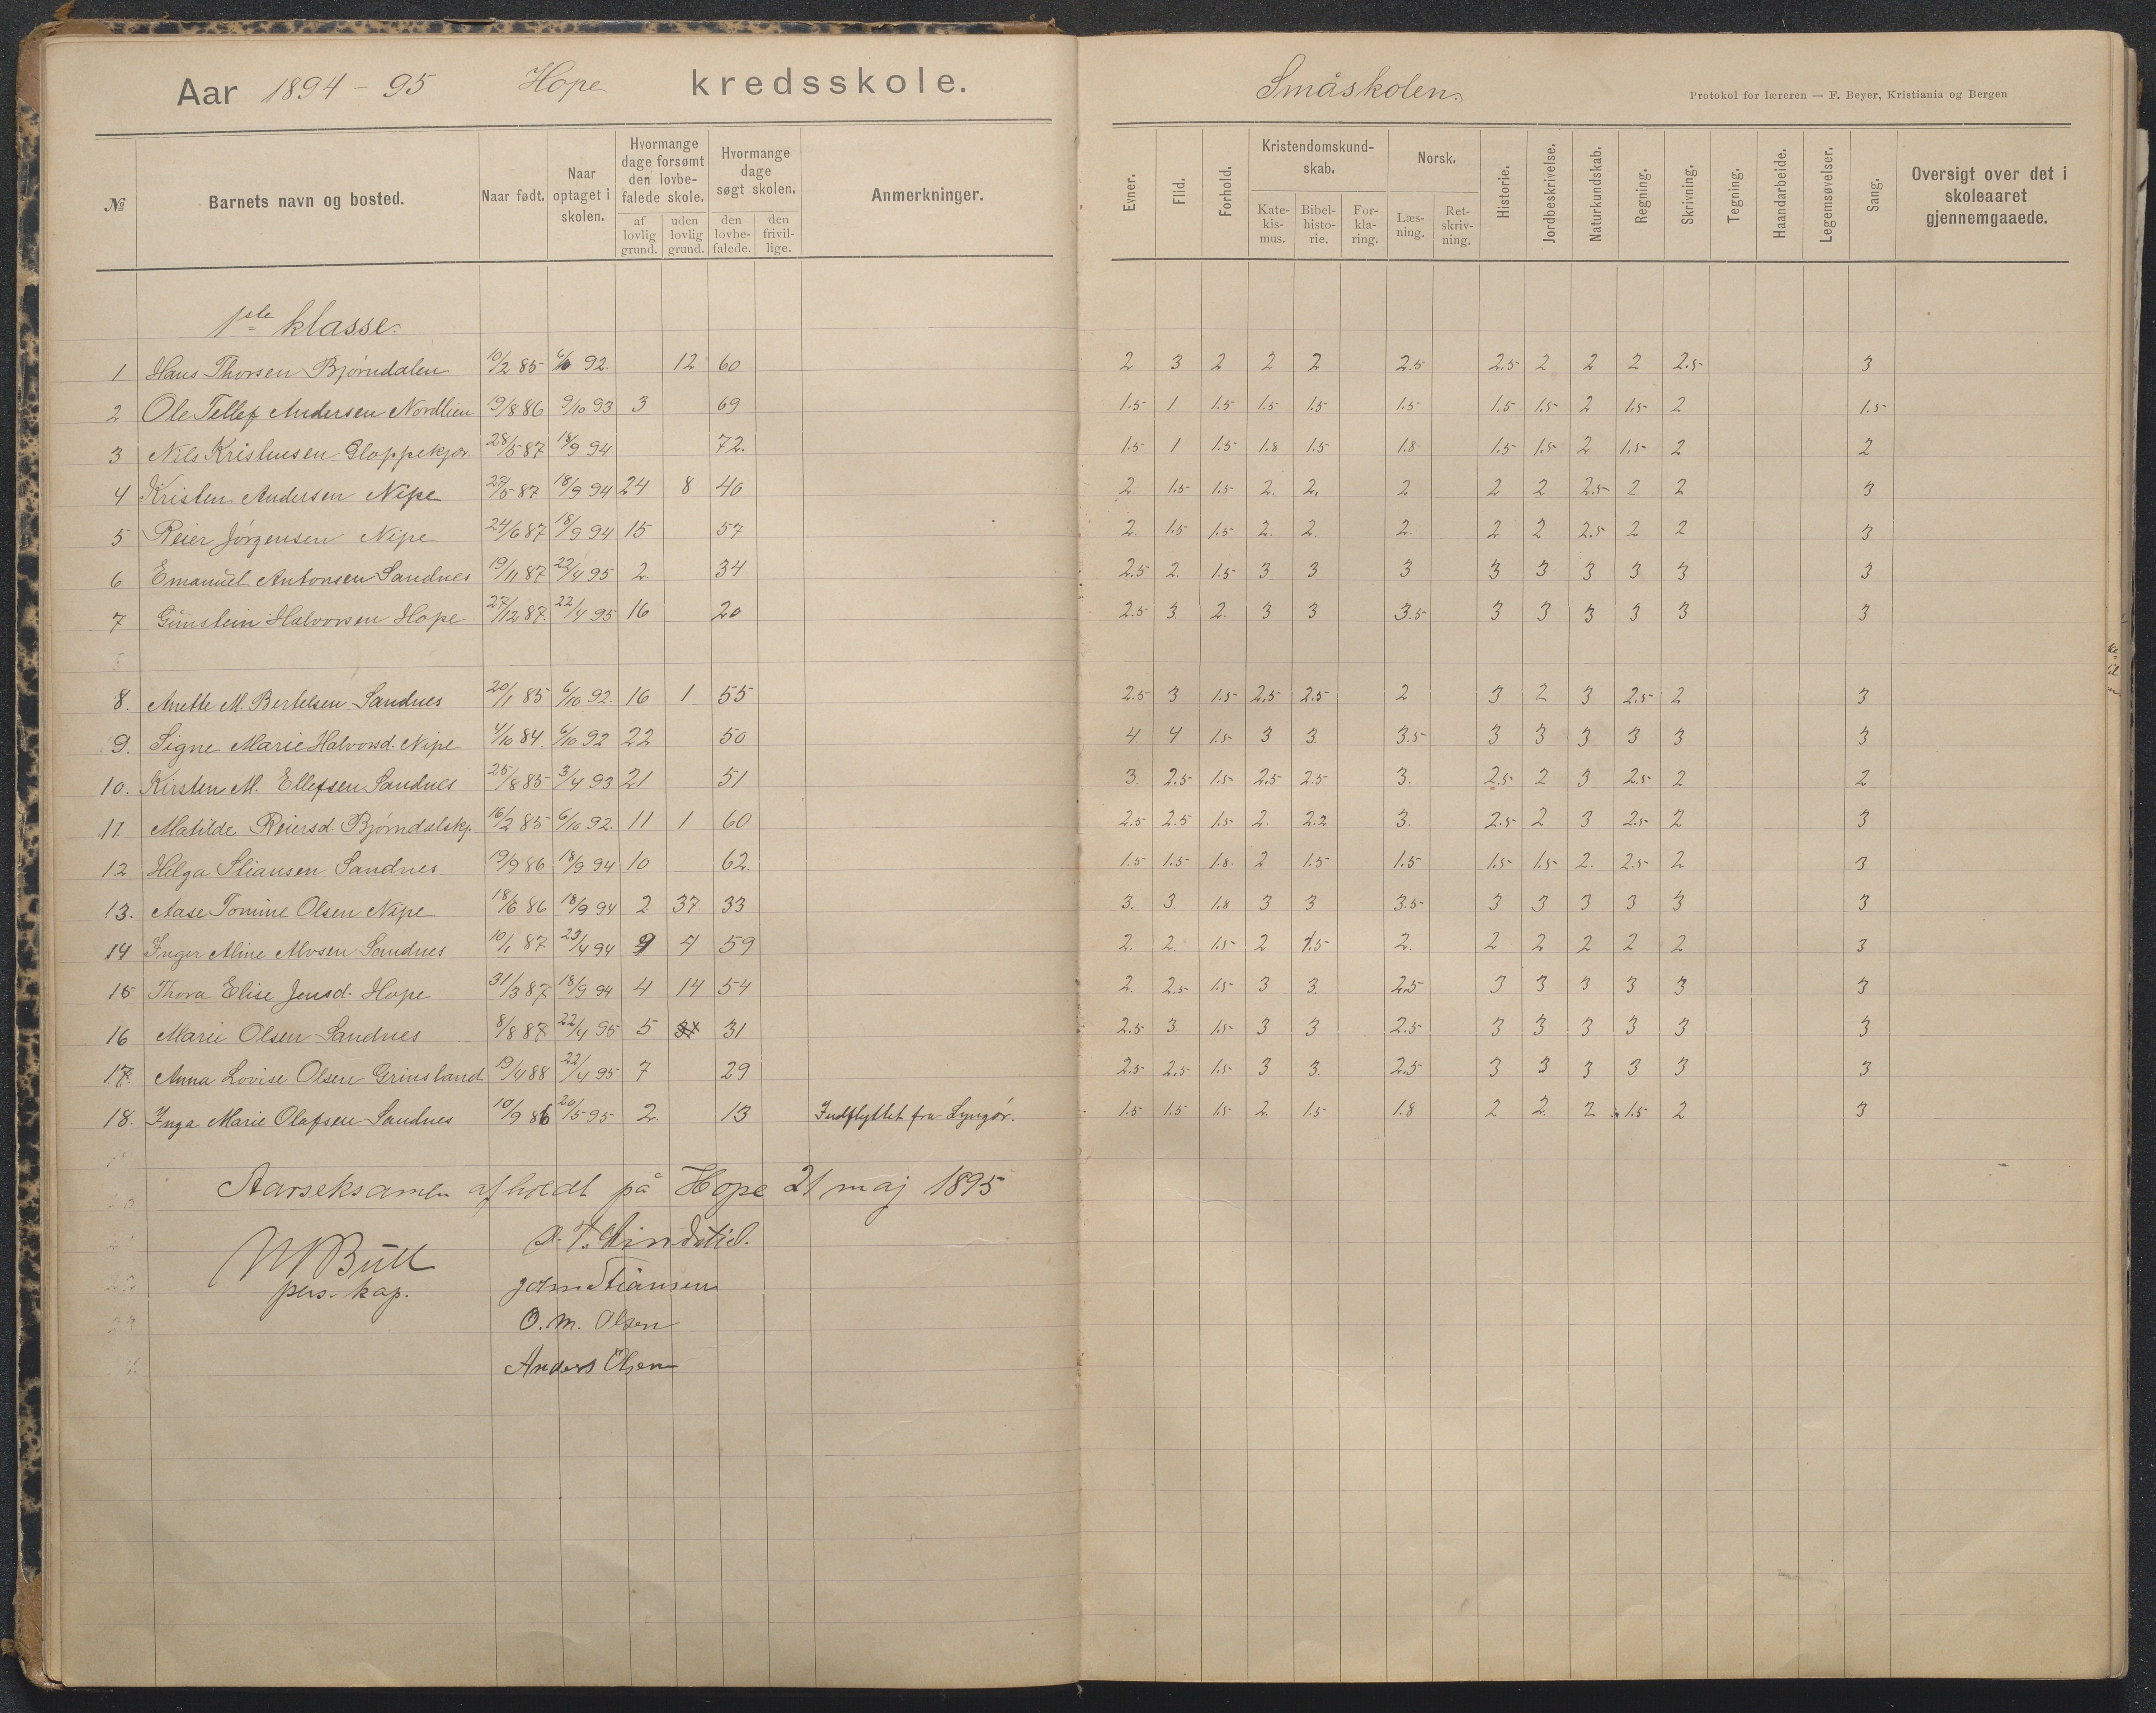 Aar 1894 - 95 Hope kredsskole.
№ Barnets navn og bosted. Naar født. Naar optaget i skolen. Hvormange dage forsømt den lovbefalede skole. af lovlig grund. uden lovlig grund. Hvormange dage søgt skolen. den lovbefalede. den frivillige. Anmerkninger.
1ste klasse.
1 Hans Thorsen Bjørndalen 10/2 85 92. 12 60
2 Ole Tellef Andersen Nordlien 19/8 86 9/10 93 3 69
3 Nils Kristensen Gloppekjær 28/5 87 18/9 94 72.
4 Kristen Andersen Nipe 27/5 87 18/9 94 24 8 40
5 Reier Jörgensen Nipe 24/6 87 18/9 94 15 57
6 Emanuel Antonsen Sandnes 19/11 87 22/4 95 2 34
7 Gunstein Halvorsen Hope 27/12 87. 22/4 95 16 20
8. Anette M. Bertelsen Sandnes 20/1 85 6/10 92. 16 1 55
9. Signe Marie Halvorsd. Nipe 4/10 84. 6/10 92 22 50
10. Kirsten M. Ellefsen Sandnes 25/8 85 3/4 93 21 51
11. Matilde Reiersd. Bjørndalskj. 16/2 85 6/10 92. 11 1 60
12 Helga Stiansen Sandnes 19/9 86 18/9 94 10 62.
13. Aase Tomine Olsen Nipe 18/6 86 18/9 94 2 37 33
14 Inger Aline Alvsen Sandnes 10/1 87 23/4 94 9 7 59
15 Thora Elise Jensd. Hope 31/3 87 18/9 94 4 14 54
16 Marie Olsen Sandnes 8/8 87 22/4 95 5 31
17. Anna Lovise Olsen Grinsland 19/4 88 22/4 95 7 29
18. Inga Marie Olafsen Sandnes 10/9 86 20/5 95 2. 13 Indflyttet fra Lyngør.
Aarseksamen afholdt på Hope 21 maj 1895
Bull
pers. kap.
John Stiansen
O. M. Olsen
Anders Olsen
Småskolen.
Protokol for læreren — F. Beyer, Kristiania og Bergen
Evner. Flid. Forhold. Kristendomskundskab. Katekismus. Bibelhistorie. Forklaring. Norsk. Læsning. Retskrivning. Historie. Jordbeskrivelse. Naturkundskab. Regning. Skrivning. Tegning. Haandarbeide. Legemsøvelser. Sang. Oversigt over det i skoleaaret gjennemgaaede.
2 3 2 2 2 2.5 2.5 2 2 2 2.5 3
1.5 1 1.5 1.5 1.5 1.5 1.5 1.5 2 1.5 2 1.5
1.5 1 1.5 1.8 1.5 1.8 1.5 1.5 2 1.5 2 2
2. 1.5 1.5 2. 2. 2 2 2 2.5 2 2 3
2. 1.5 1.5 2. 2. 2. 2 2 2.5 2 2 3
2.5 2. 1.5 3 3 3 3 3 3 3 3 3
2.5 3. 2. 3 3 3.5 3 3 3 3 3 3
2.5 3 1.5 2.5 2.5 2 3 2 3 2.5 2 3
4. 4 1.5 3 3 3.5 3 3 3 3 3 3
3. 2.5 1.5 2.5 2.5 3. 2.5 2 3 2.5 2 2
2.5 2.5 1.5 2. 2.2 3. 2.5 2 3 2.5 2 3
1.5 1.5 1.8. 2 1.5 1.5 1.5 1.5 2. 2.5 2 3
3. 3. 1.8 3 3 3.5 3 3 3 3 3 3
2. 2. 1.5 2 1.5 2. 2 2 2 2 2 3
2. 2.5 1.5 3 3. 2.5 3 3 3 3 3 3
2.5 3. 1.5 3 3 2.5 3 3 3 3 3 3
2.5 2.5 1.5 3 3. 2.5 3 3 3 3 3 3
1.5 1.5 1.5 2. 1.5 1.8 2 2. 2 1.5 2 3